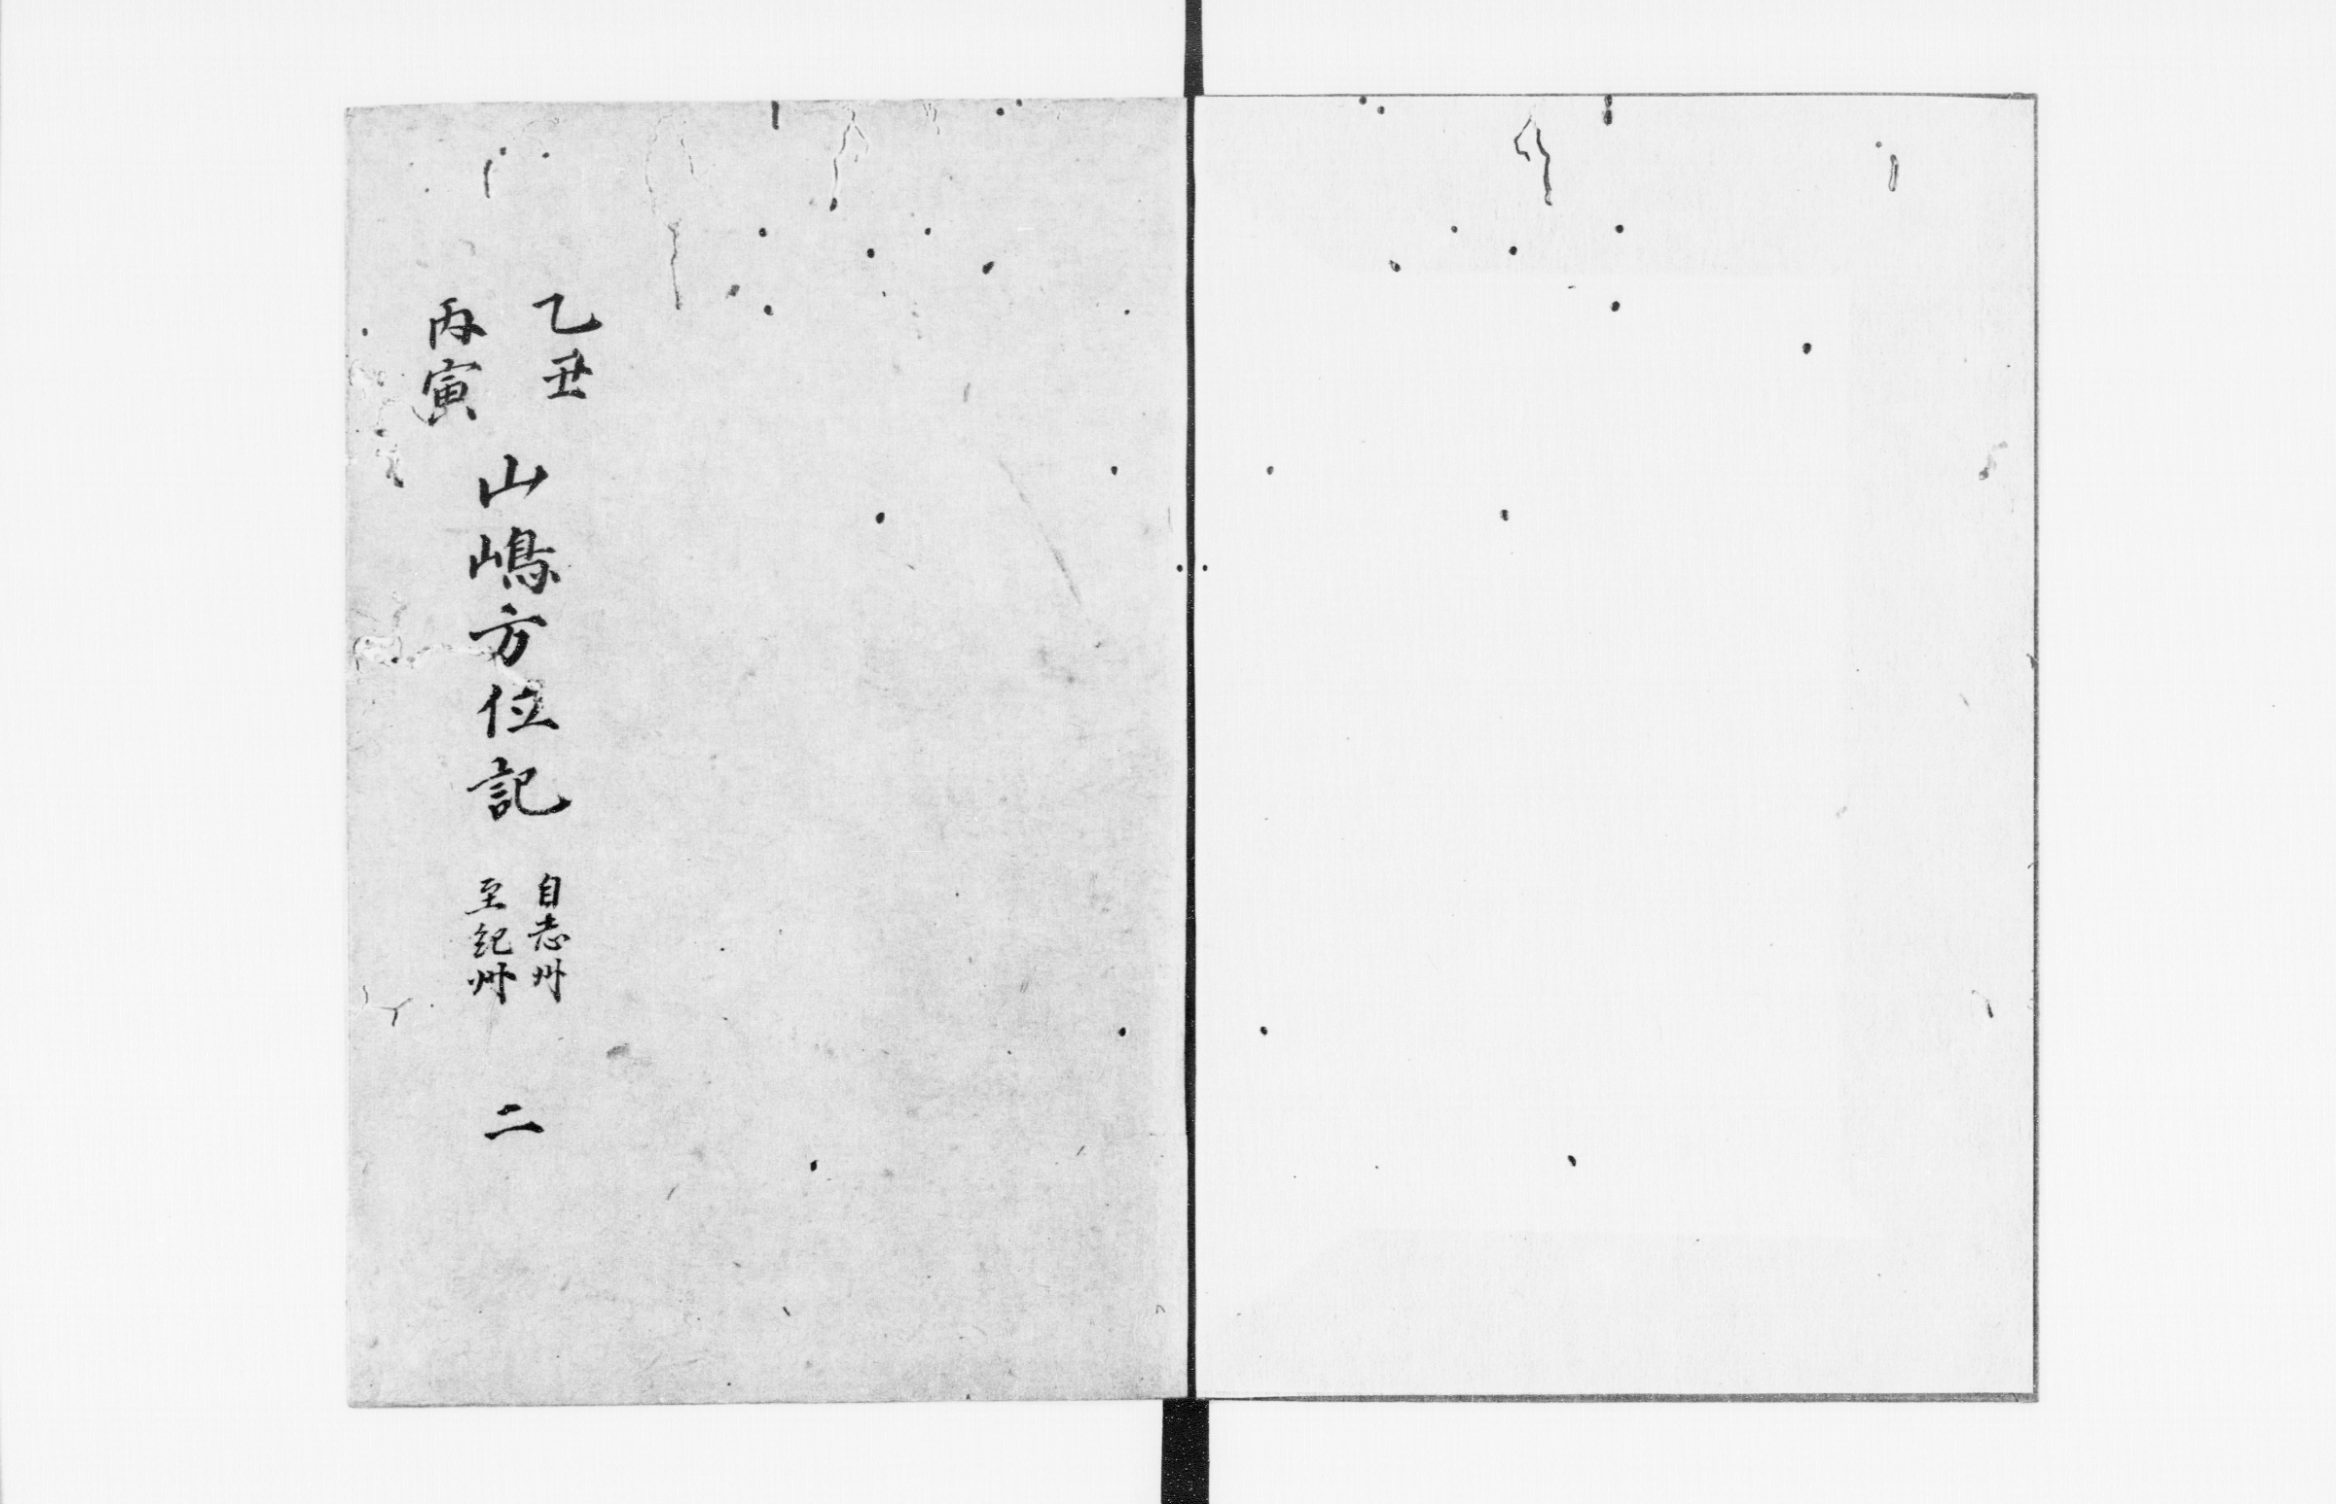 乙丑
丙寅
山嶋方位記
自志州
至紀州
二